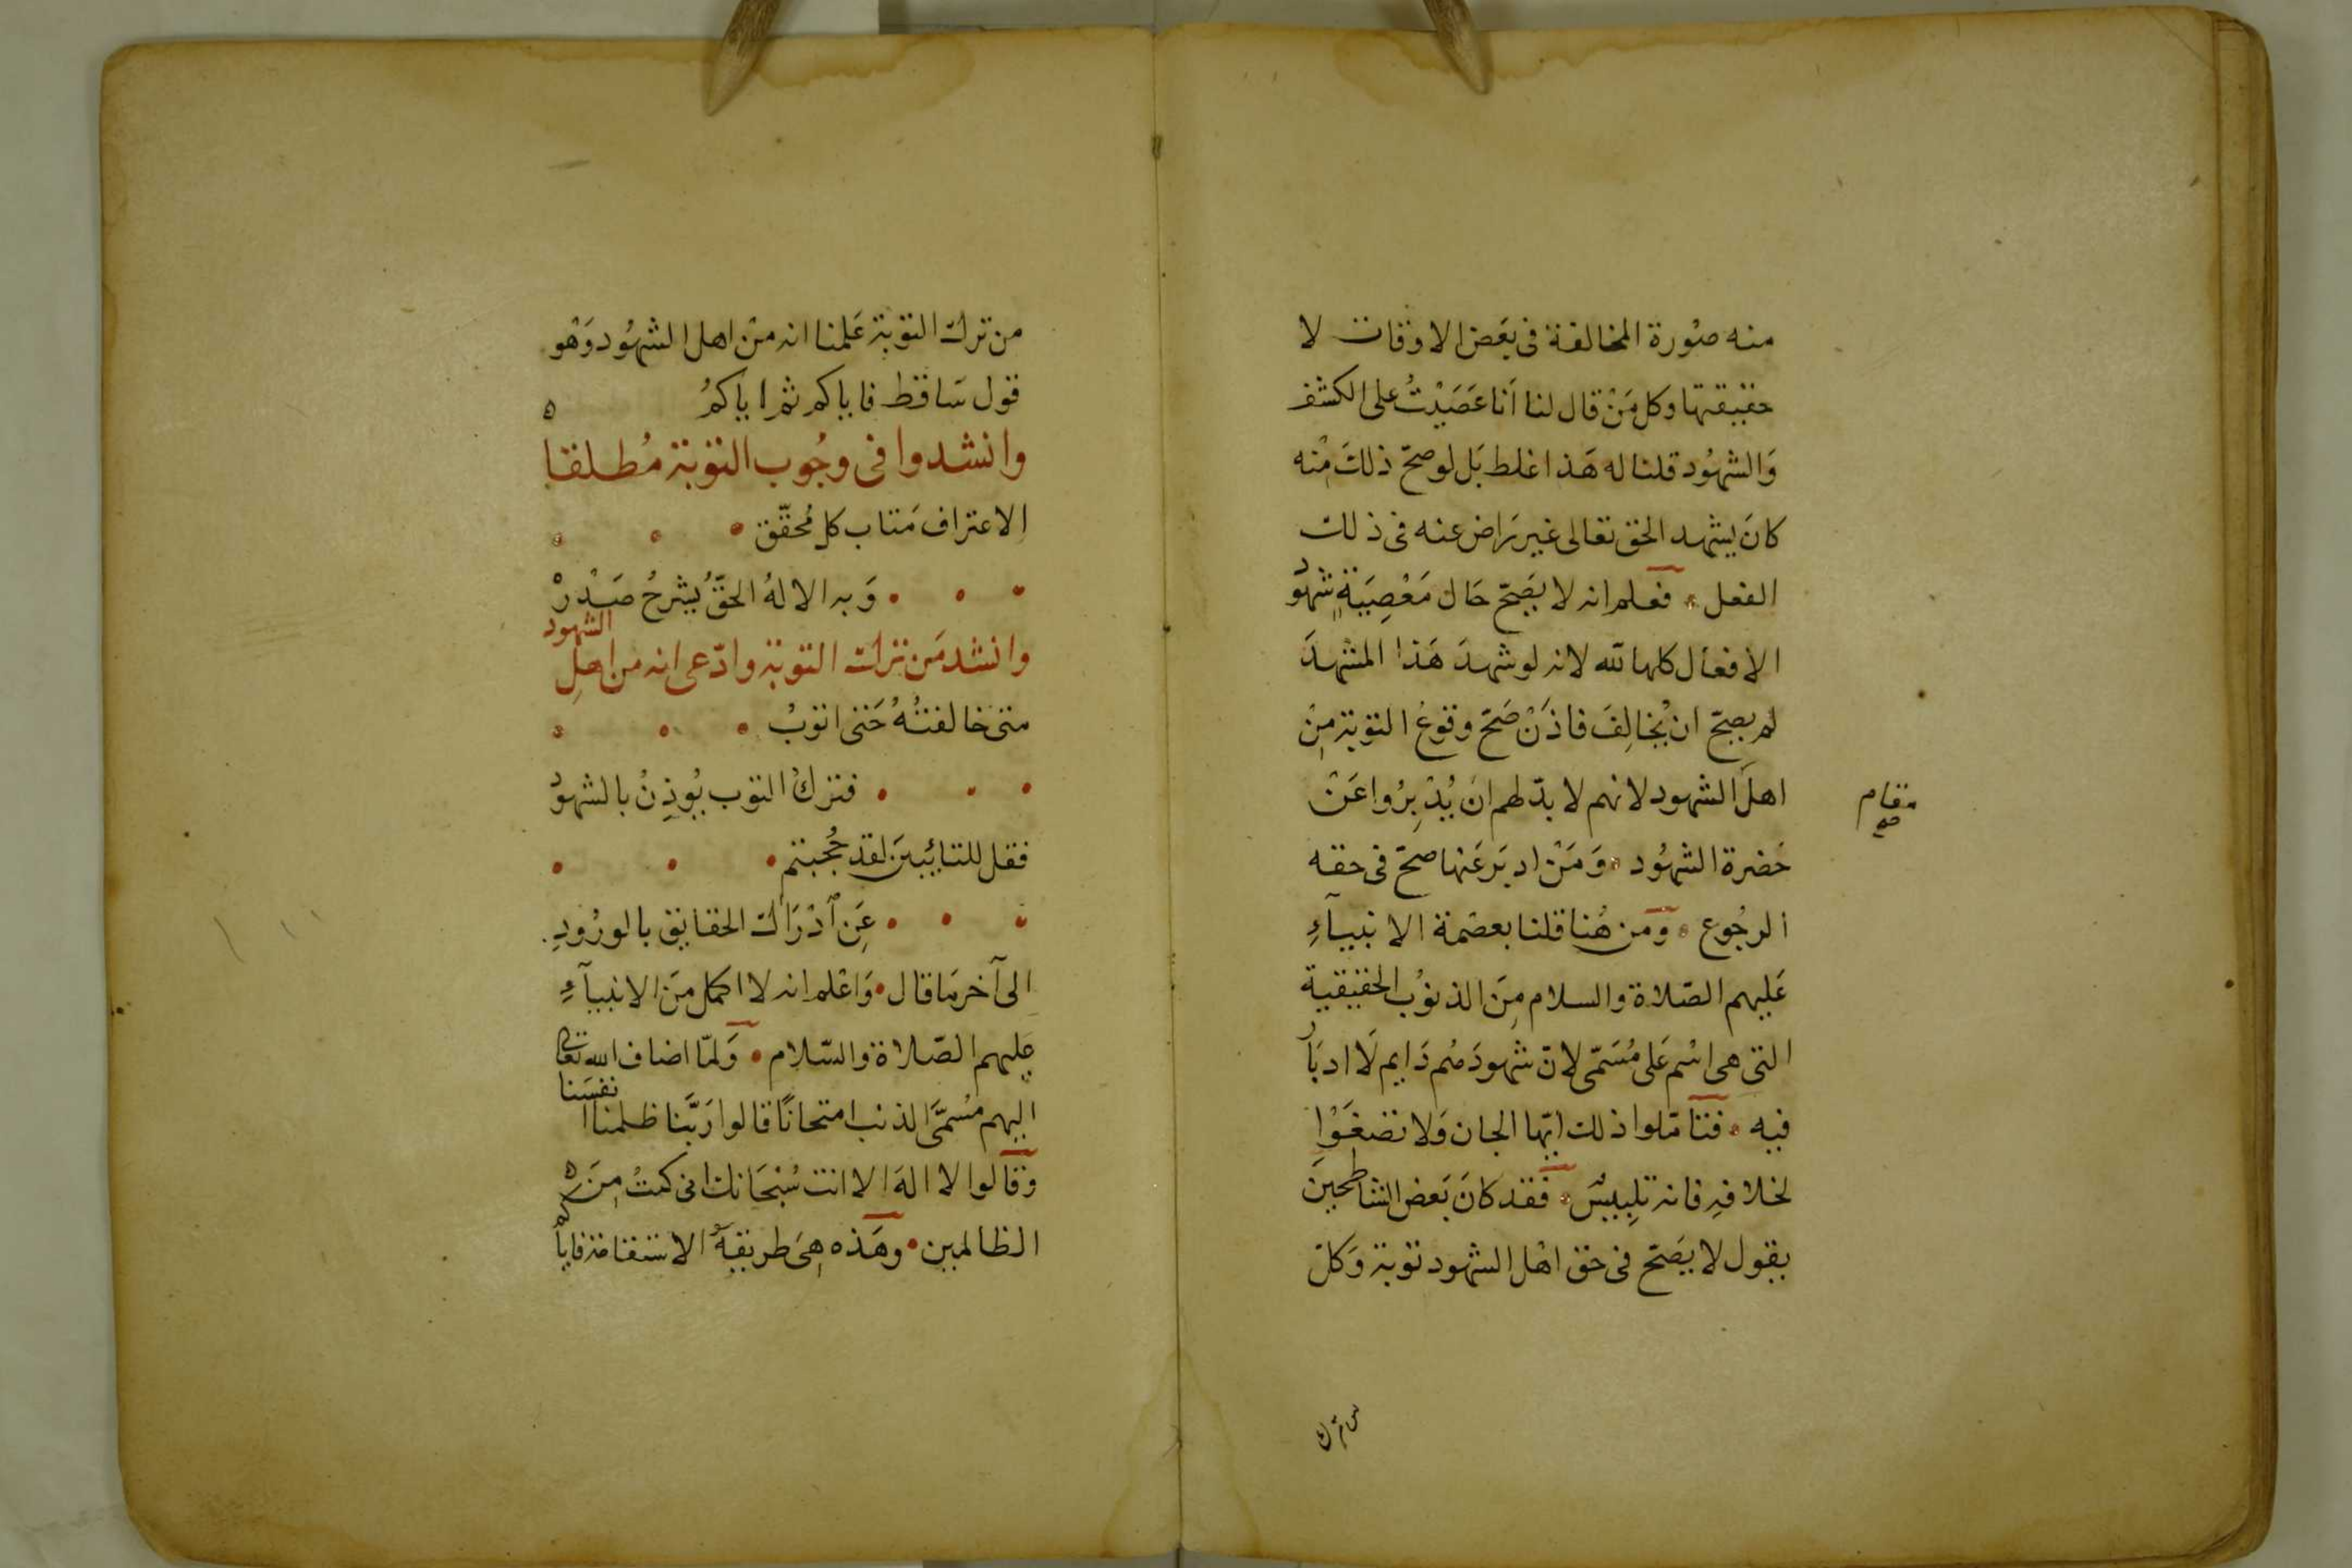 منه صُورة المخالفة فى بَعَض الاوقات لا
حقيقتها وكل مَنْ قال لنا اَنا عَصَيْتُ على الكشف
وَالشهُود قلنا له هَذا غلط بَل لو صحّ ذلكَ مْنه
كانَ يشهد الحق تعالى غير رَاض عنه فى ذلك
الفعل • فعلم انه لا يَصَحّ حَال مَعْصِيَةٍ شهُود
الافعال كلها لله لانه لو شهدَ هَذا المشهدَ
لم يصحّ ان يُخالِفَ فاذَنْ صَحّ وقوعُ التوبة مِنْ
اهل الشهود لانهم لا بدّ لهم ان يُدْبِرُوا عَنْ
مقام صح
حَضرة الشهُود • وَمَنْ ادبَر عَنها صحّ فى حقه
الرجُوع • ومن هُنا قلنا بعصْمة الانبيآءِ
عَليهم الصّلاة والسلام مِنَ الذنوُب الحقيقية
التى هى اسْم عَلى مُسَمّى لانّ شهودَهُم دَايم لَا ادبَار
فيه • فتامّلوا ذلك ايّها الجان وَلا تصْغَوْا
لخلافِه فانه تلِبيسْ • فقد كانَ بَعض الشاطحينَ
يقول لا يَصَحّ فى حق اهْل الشهود توبة وَكلّ
من ترك
من ترك التوبَة عَلمنا انه منْ اهل الشهُود وَهْو
قول سَاقط فاياكم ثم اياكمُ ه
وانشدوا فى وجُوب التوبَة مُطلقا
الاعتراف مَتاب كل مُحقّق • • •
• • • وَبه الالهُ الحقُّ يُشرحُ صَدْرهْ
وانشد مَن ترك التوبة وادّعى انه من اهلِ الشهود
متى خالفتُهُ حَتى اتوبُ • • •
• • • فتركُ التوب يُوذِنُ بالشهودْ
فقل للتائِبينَ لقد حُجبتم • • •
• • • عَن اَدْرَاك الحقايق بالورُودِ
الى آخر مَا قال • وَاعْلم انه لا اكمل مَن الانبيآءِ
عليهم الصّلاة والسّلام • وَلمّا اضاف الله تعالى
اليهم مسُمَّى الذنب امتحانًا قالوا رَبَّنا ظلمنا انفسَنا
وَقالوا لا الهَ الا انت سُبْحَانك انى كنتُ مِنَ ه
الظالمين • وهَذه هِىَ طريقة الاستقامَة فاياكم